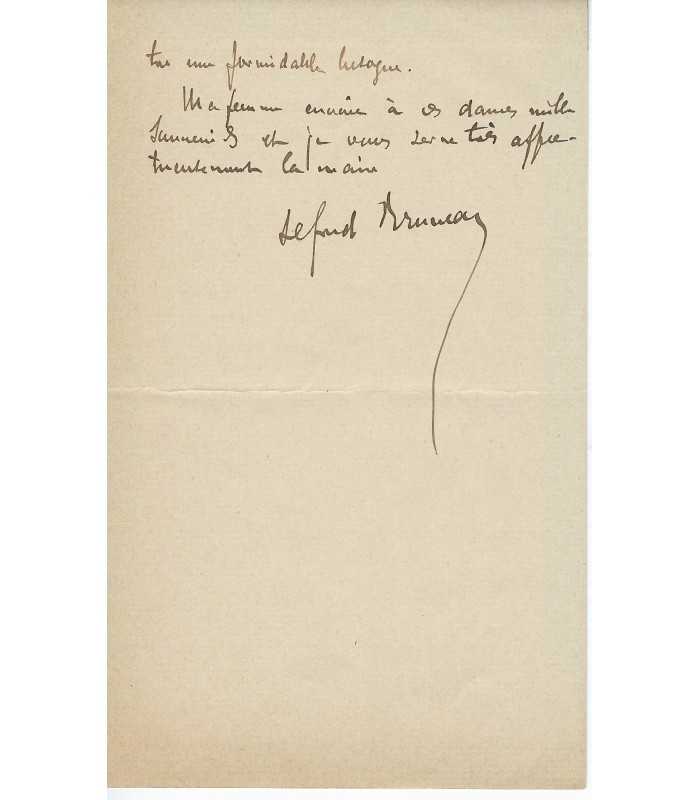 tre une formidable besogne.
Ma femme envoie à ces dames mille
souvenirs et je vous serre très affec-
tueusement la main
Alfred Bruneau